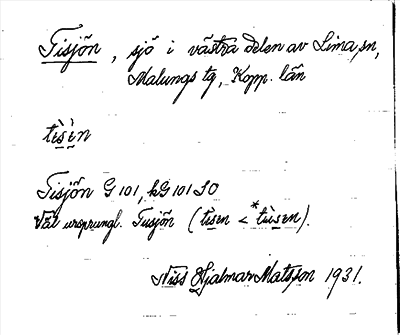 Tisjön, sjö i västra delen av Lima sn,
Malungs tg, Kopp. län
tìsèn
Tisjön G 101, kG 101 SO
Väl ursprungl. Tusjön (tìsen < *tùsen).
Niss Hjalmar Matsson 1931.